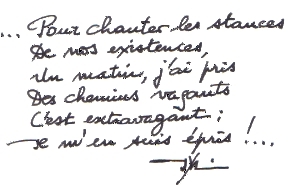 ... Pour chanter les stances
De nos existences,
Un matin, j'ai pris
Des chemins vagants
C'est extravagant ;
Je m'en suis épris !....